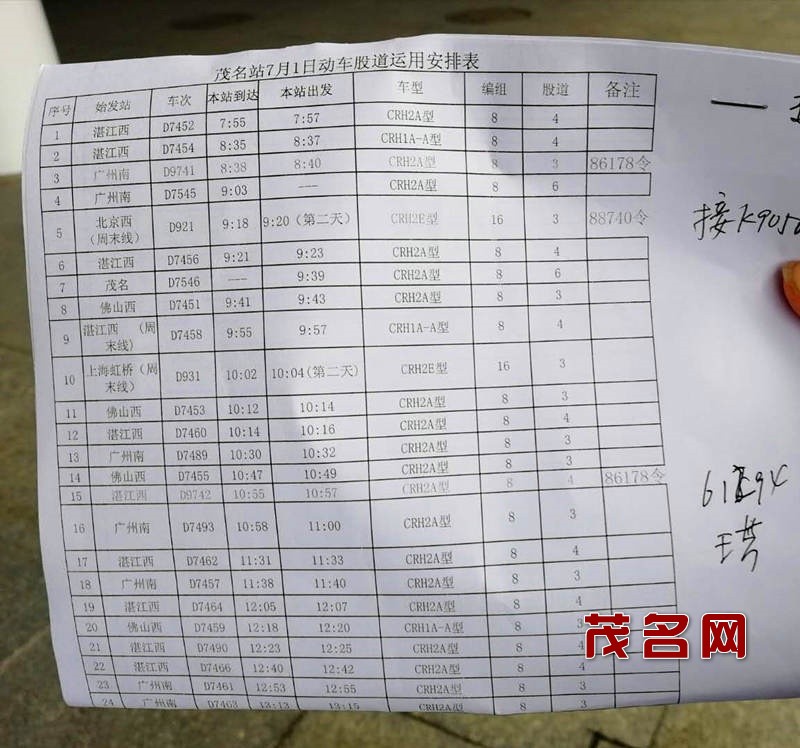 茂名站7月1日动车股道运用安排表
序号 始发站 车次 本站到达 本站出发 车型 编组 股道 备注
1 湛江西 D7452 7:55 7:57 CRH2A型 8 4
2 湛江西 D7454 8:35 8:37 CRH1A-A型 8 4
3 广州南 D9741 8:38 8:40 CRH2A型 8 3 86178令
4 广州南 D7545 9:03 --- CRH2A型 8 6
5 北京西（周末线） D921 9:18 9:20（第二天） CRH2E型 16 3 88740令
6 湛江西 D7456 9:21 9:23 CRH2A型 8 4
7 茂名 D7546 --- 9:39 CRH2A型 8 6
8 佛山西 D7451 9:41 9:43 CRH2A型 8 3
9 湛江西（周末线） D7458 9:55 9:57 CRH1A-A型 8 4
10 上海虹桥（周末线） D931 10:02 10:04（第二天） CRH2E型 16 3
11 佛山西 D7453 10:12 10:14 CRH2A型 8 3
12 湛江西 D7460 10:14 10:16 CRH2A型 8 4
13 广州南 D7489 10:30 10:32 CRH2A型 8 3
14 佛山西 D7455 10:47 10:49 CRH2A型 8 3
15 湛江西 D9742 10:55 10:57 CRH2A型 8 4 86178令
16 广州南 D7493 10:58 11:00 CRH2A型 8 3
17 湛江西 D7462 11:31 11:33 CRH2A型 8 4
18 广州南 D7457 11:38 11:40 CRH2A型 8 3
19 湛江西 D7464 12:05 12:07 CRH2A型 8 4
20 佛山西 D7459 12:18 12:20 CRH1A-A型 8 3
21 湛江西 D7490 12:23 12:25 CRH2A型 8 4
22 湛江西 D7466 12:40 12:42 CRH2A型 8 4
23 广州南 D7461 12:53 12:55 CRH2A型 8 3
24 广州南 D7463 13:13 13:15 CRH2A型 8 3
接K905
茂名网